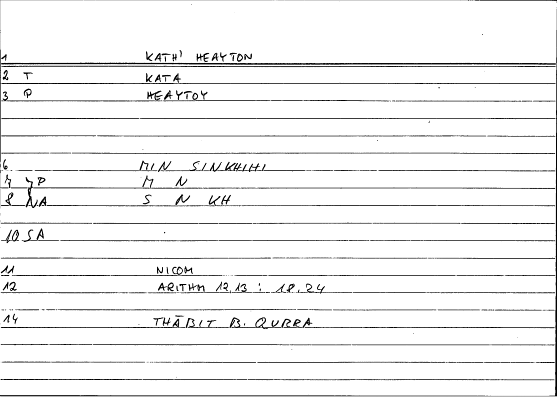 1 KATH' HEAYTON
2 T KATA
3 P HEAYTOY
6 MIN SINKHIHI
7 YP M N
8 NA S N KH
10 SA
11 NICOM
12 ARITHM 12,13 : 18,24
14 THĀBIT B. QURRA